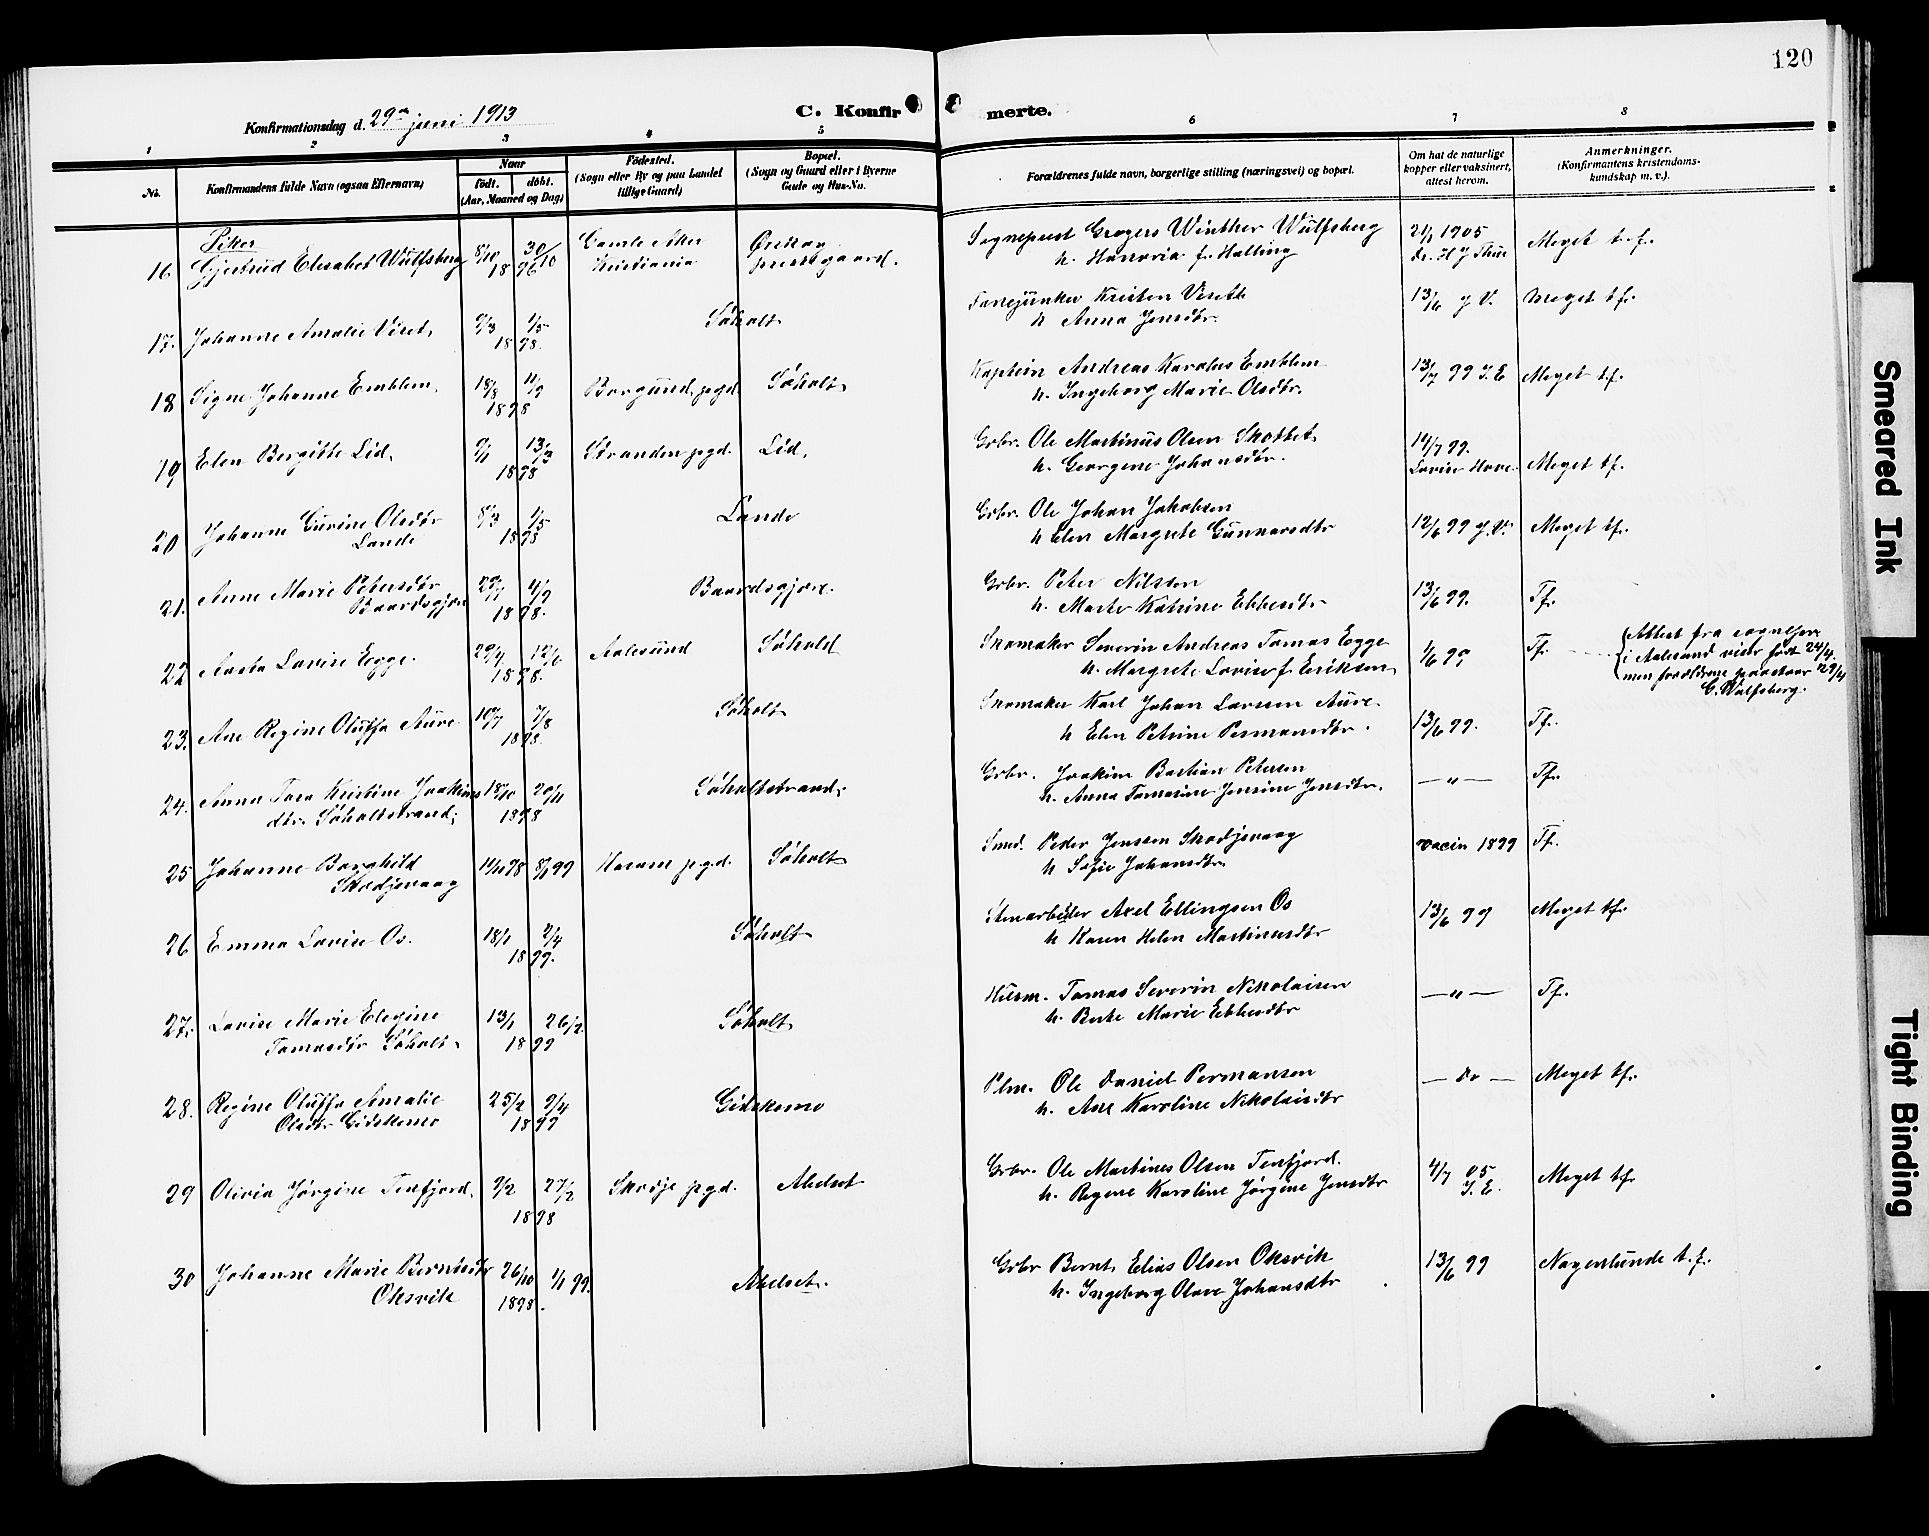 120
Konfirmationsdag d. 29de juni 1913
C. Konfirmerte.
1 2 3 4 5 6 7 8
No.
Konfirmandens fulde Navn (ogsaa Efternavn)
Naar
født. døbt.
(Aar, Maaned og Dag)
Fødested.
(Sogn eller By og paa Landet
tillige Gaard)
Bopæl.
(Sogn og Gaard eller i Byerne
Gade og Hus-No.
Forældrenes fulde navn, borgerlige stilling (næringsvei) og bopæl.
Om hat de naturlige
kopper eller vaksinert,
attest herom.
Anmerkninger.
(Konfirmantens kristendoms-
kundskap m. v.).
Piker
16 Gjertrud Elisabet Wulfsberg 8/10 30/10 1896 Gamle Aker Kristiania Ørskog prestegaard. Sogneprest Gregers Winther Wulfsberg
h. Hanna f. Halling 21/1 1905 Meget t. f.
17. Johanne Amalie Viset 9/3 1/5 1898. Søholt Kristen Viseth
h Anna Jensdtr. 13/6 J V. Meget t.f.
18 Signe Johanne Emblem. 18/8 11/9 1898 Borgund pgd Søholt Kaptein Andreas Karolus Emblem
h. Ingeborg Marie Olsdtr. 13/7 99 J. E Meget t.f.
19 Elen Bergitte Lid. 9/1 13/3 1898 Stranden pgd. Lid. Grbr. Ole Martinus Olsen Skottet
h. Georgine Johansdtr. 14/7 99. Lovise Hove Meget t.f.
20 Johanne Gurine Olsdtr
Lande 8/3 1/5 1898 Lande Grbr. Ole Johan Jakobsen
h Elen Margrete Gunnarsdtr 12/6 99 J. V. Meget t.f.
21. Anne Marie Petersdtr
Baardsgjære 4/9 1898. Baardsgjære. Grbr. Peter Nilssen
h. Marte Katrine Ebbesdtr 13/6 99. Tf.
22 Aasta Lovise Egge. 29/4 12/6 1898. Aalesund Søhold Skomaker Severin Andreas Tomas Egge
h. Margrete Lovise f. Eriksen 1/6 99 Tf.
Attest fra
i Aalesund viser født 24/4
men forældrene paastaar 29/4
G. Wulfsberg.
23. Ane Regine Oluffa Aure 10/7 7/8 1898. Søholt Skomaker Karl Johan Larsen Aure
h Elen Petrine Permansdtr. 13/6 99. Tf.
24. Anna Tora Kristine Joakims
dtr. Søholtstrand. 18/10 20/11 1898 Søholtstrand. Grbr. Joakim Bastian Petersen
h. Anna Tomasine Jensine Jensdtr. — " — Tf.
25 Johanne Borghild
Skodjevaag 11/11 98 8/1 99 Haram pgd. Søholt Smed. Peder Jensen Skodjevaag
h Sofie Johansdtr. vacin 1899 Tf.
26 Emma Lovise Os. 18/1 2/4 1899. Søholt Stenarbeider Axel Ellingsen Os
h Karen Helen Martinusdtr 13/6 99 Meget tf.
27. Lovise Marie Elegine
Tomasdtr Søholt 13/1 26/2 1899 Søholt Husm. Tomas Severin Nikolaisen
h. Berte Marie Ebbesdtr — " — Tf.
28. Regine Oluffa Amalie
Olsdtr Gidskemo 25/2 2/4 1899 Gidskemo Plm. Ole Daniel Permansen
h. Ane Karoline Nikolaisdtr — Do — Meget tf.
29 Olivia Jørgine Tenfjord. 9/2 27/2 1898 Skodje pgd. Abelset Grbr. Ole Martines Olsen Tenfjord.
h. Regine Karoline Jørgine Jensdtr 4/7 05 J. E. Meget tf.
30 Johanne Marie Berntsdtr
Oksvik 26/10 1898. 1/1 99. Abelset. Grbr Bernt Elias Olsen Oksvik
h. Ingeborg Olave Johansdtr 13/6 99 Nogenlunde t.f.
Smeared Ink
Tight Binding